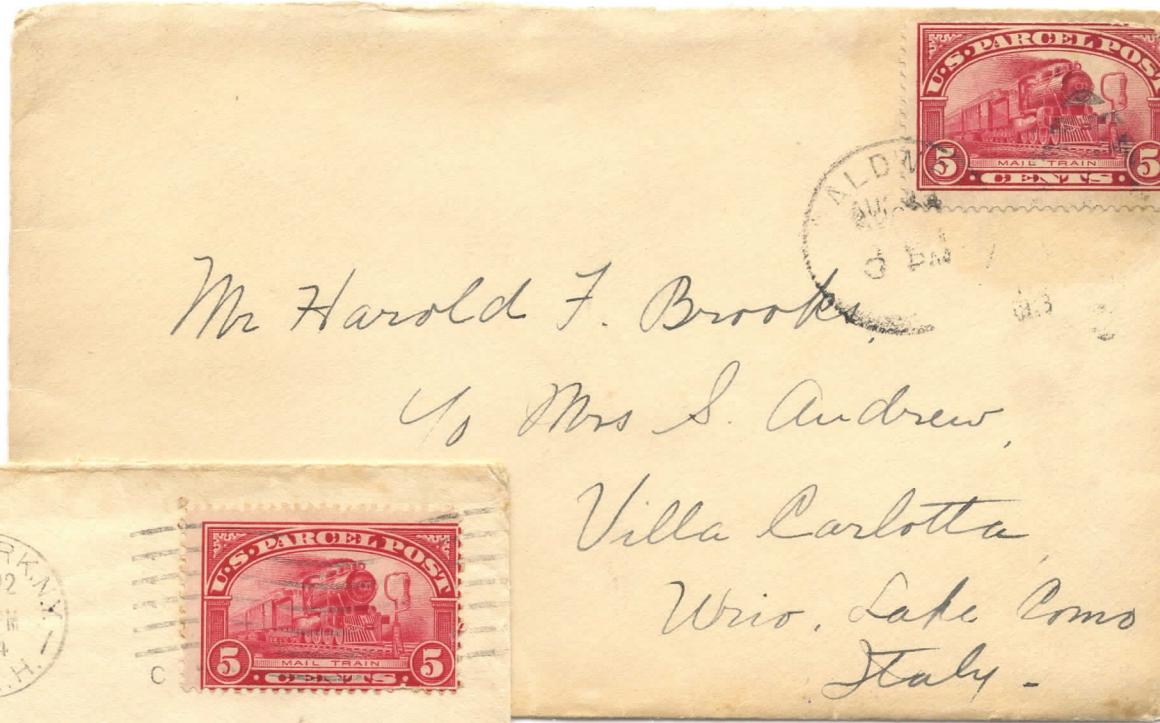 U.S. PARCEL POST
5 MAIL TRAIN 5
CENTS
ALDW
AUG
PM
Mr Harold F. Brooks,
c/o Mrs S. Andrew,
Villa Carlotta
Urio, Lake Como
Italy -
RK, N.Y.
2
M
4
.H.
C
U.S. PARCEL POST
5 MAIL TRAIN 5
CENTS